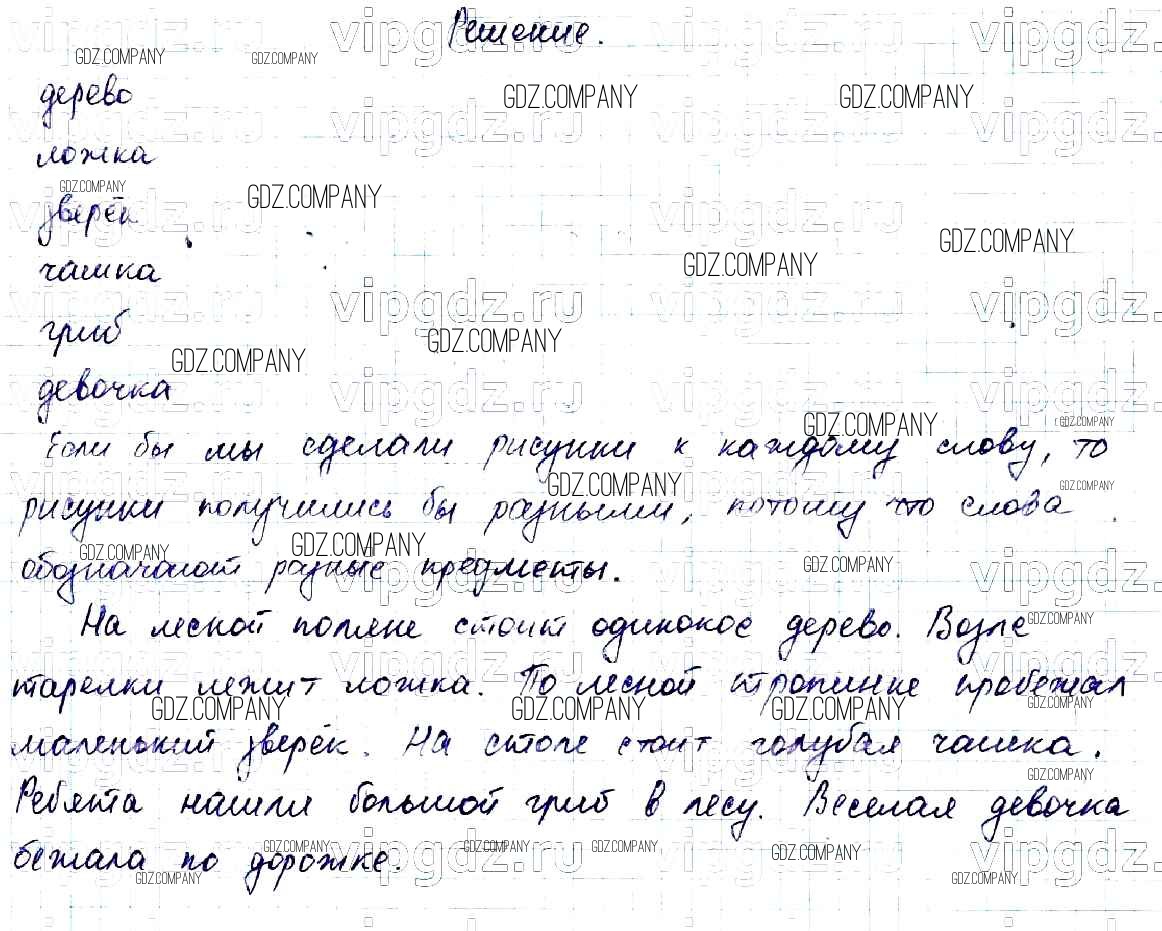 Решение.
дерево
ложка
зверёк
чашка
гриб
девочка
Если бы мы сделали рисунки к каждому слову, то
рисунки получились бы разными, потому что слова
обозначают разные предметы.
На лесной поляне стоит одинокое дерево. Возле
тарелки лежит ложка. По лесной тропинке пробежал
маленький зверёк. На столе стоит голубая чашка.
Ребята нашли большой гриб в лесу. Веселая девочка
бежала по дорожке.
vipgdz.ru
GDZ.COMPANY